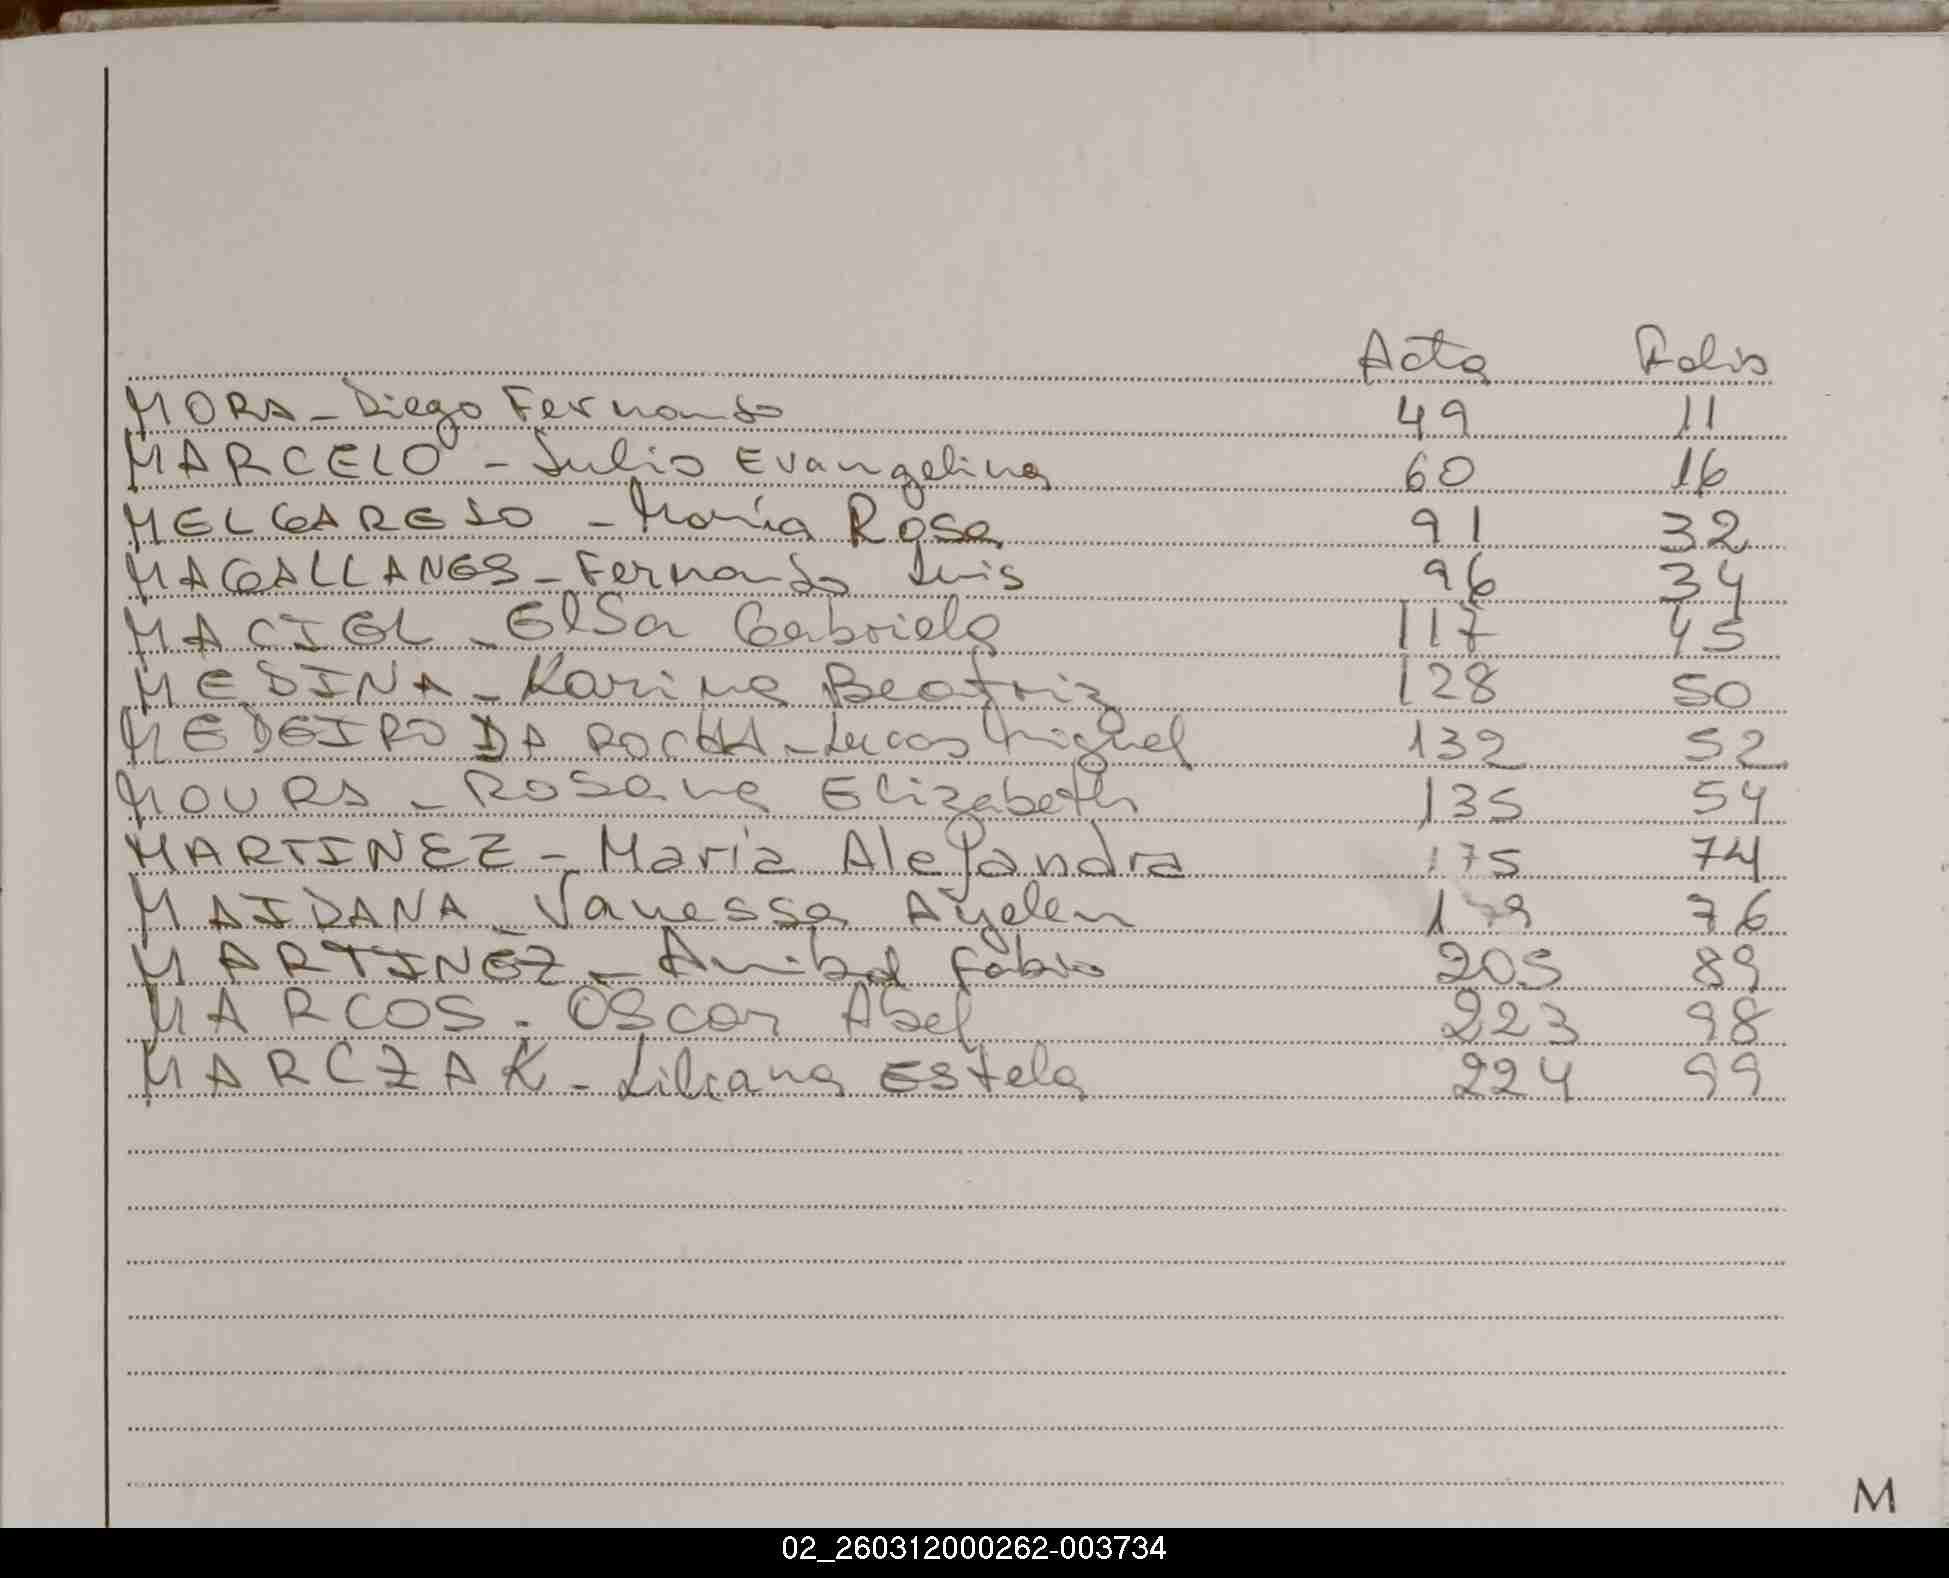 Acta Folio
MORA - Diego Fernando 49 11
MARCELO - Julio Evangelina 60 16
MELGAREJO - María Rosa 91 32
MAGALLANES - Fernando Luis 96 34
MACIEL - Elsa Gabriela 117 45
MEDINA - Karina Beatriz 128 50
MEDEIRO DA ROCHA - Lucas Miguel 132 52
MOURA - Rosana Elizabeth 135 54
MARTINEZ - Maria Alejandra 175 74
MAIDANA - Vanessa Ayelen 179 76
MARTINEZ - Anibal Fabio 205 89
MARCOS - Oscar Abel 223 98
MARCZAK - Liliana Estela 224 99
M
02_260312000262-003734